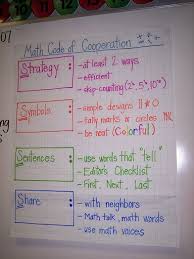 07
Math Code of Cooperation
Strategy: - at least 2 ways
- efficient
- skip-counting (2's, 5's, 10's)
Symbols: - simple designs
- tally marks or circles
- be neat (Colorful)
Sentences: - use words that "tell"
- Editor's Checklist
- First, Next, Last
Share: - with neighbors
- Math talk, math words
- use math voices